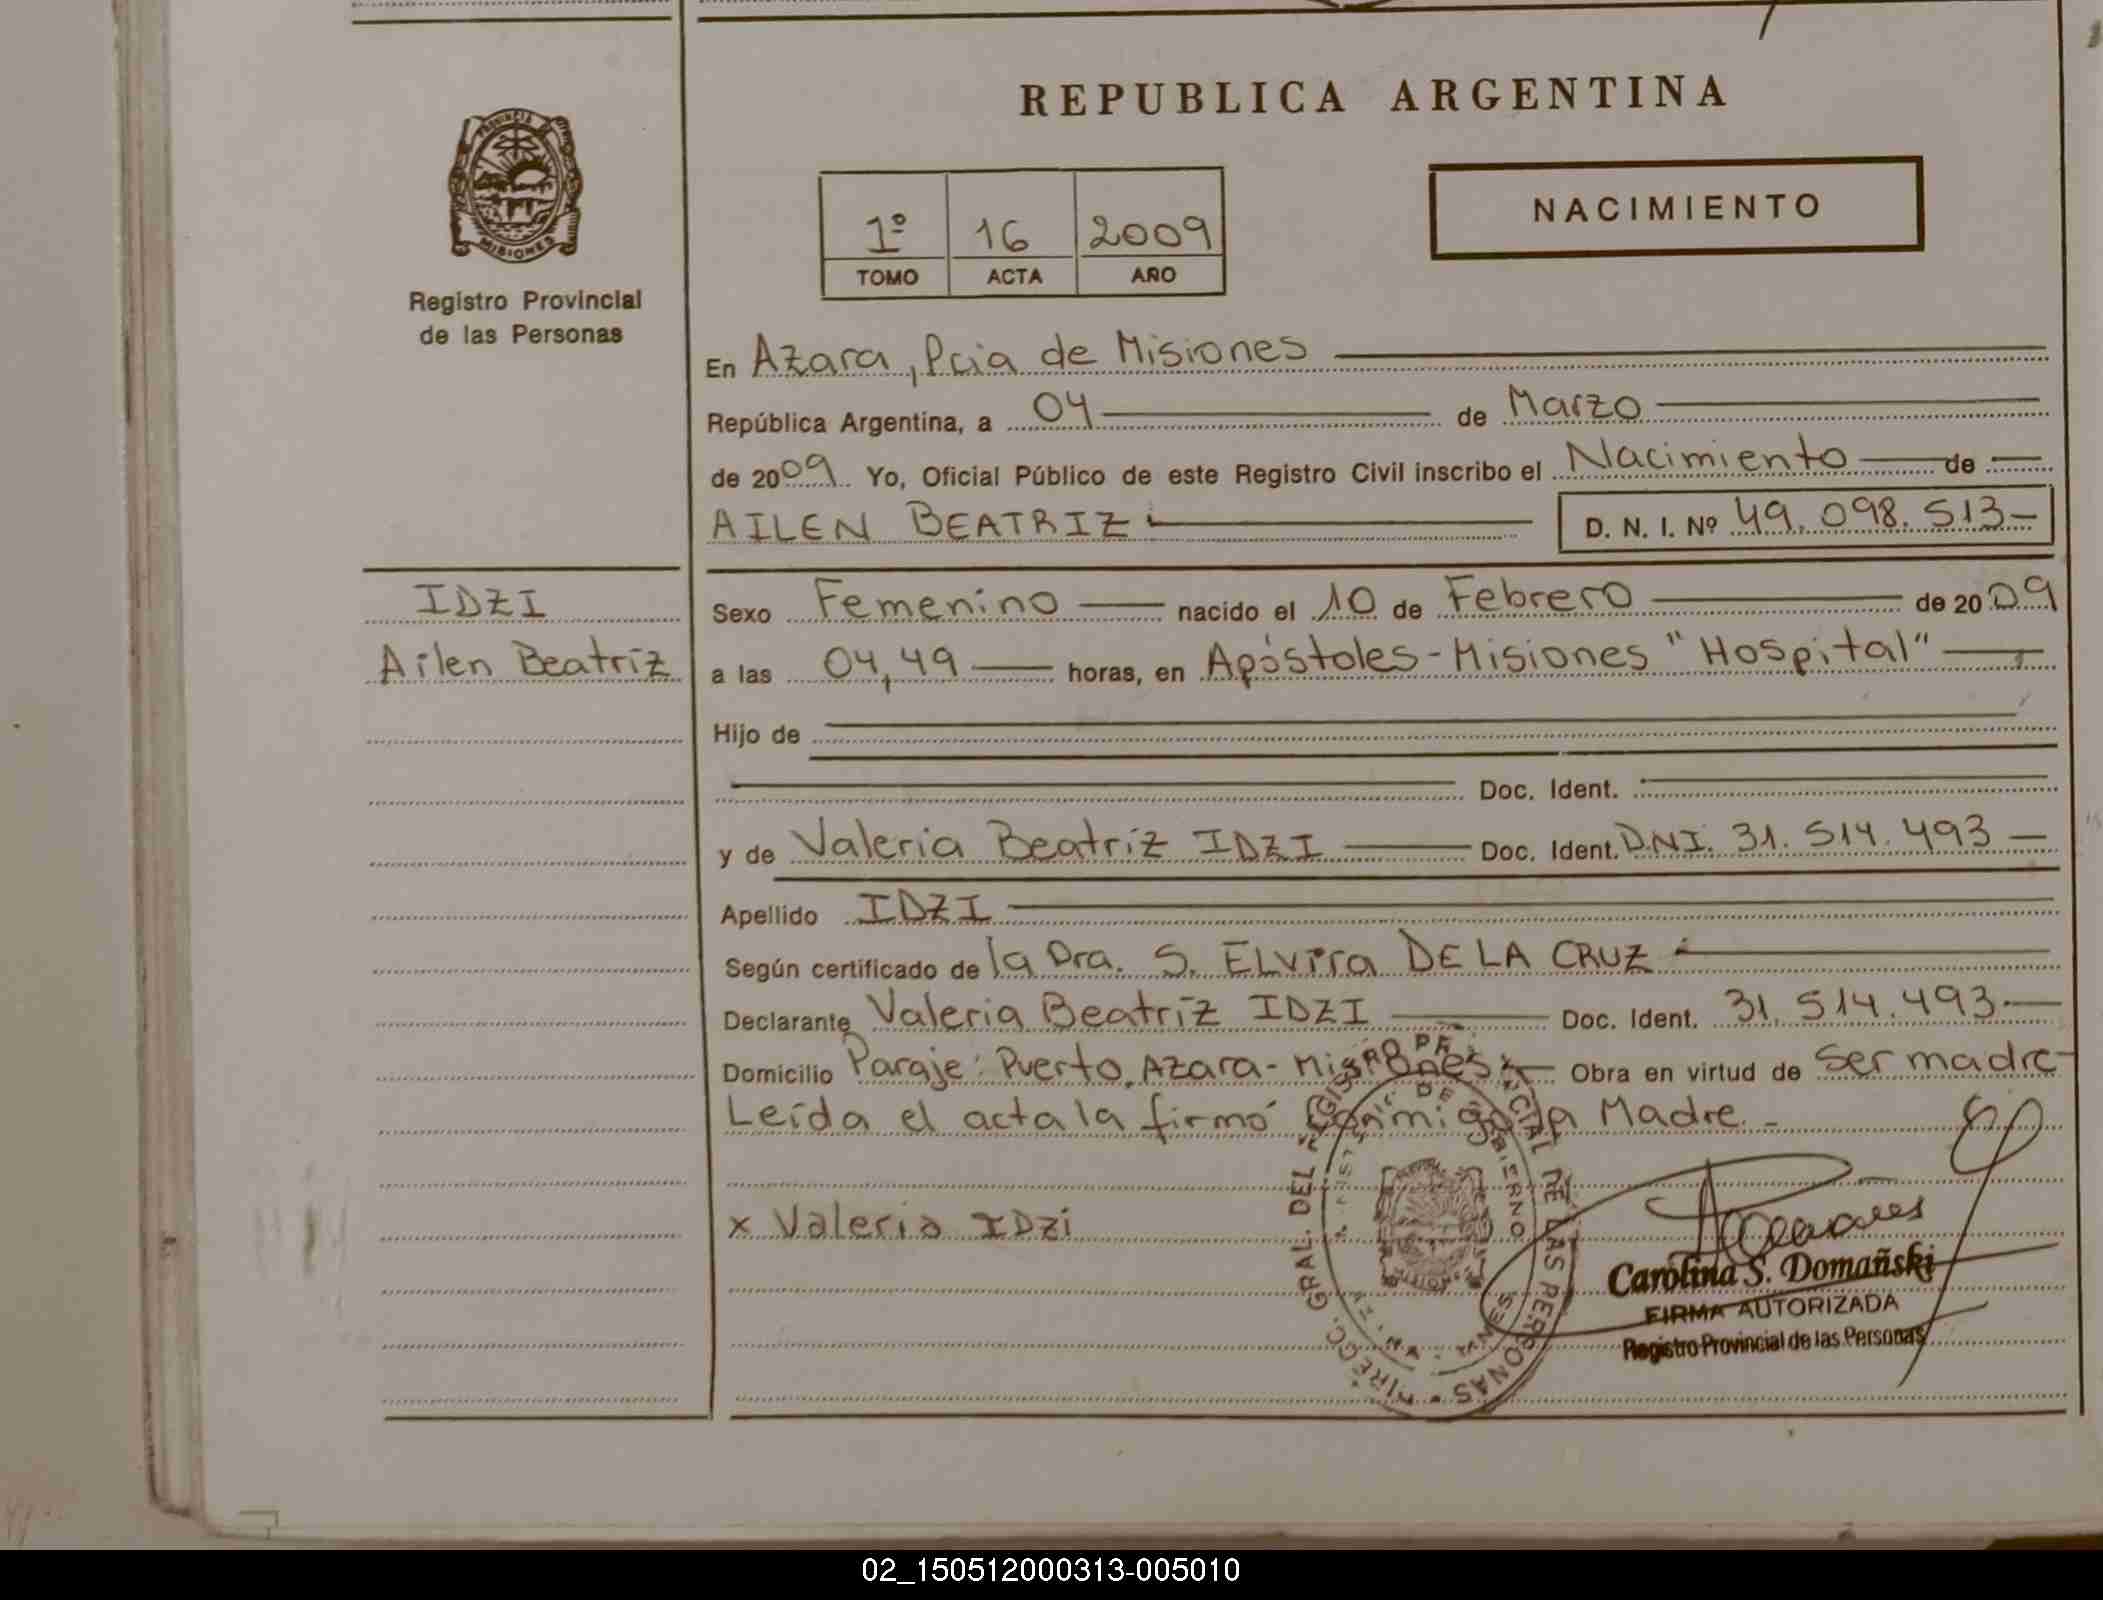 REPUBLICA ARGENTINA
PROVINCIA DE
MISIONES
Registro Provincial
de las Personas
1º 16 2009
TOMO ACTA AÑO
NACIMIENTO
En Azara, Pcia de Misiones
República Argentina, a 04 de Marzo
de 2009 Yo, Oficial Público de este Registro Civil inscribo el Nacimiento de
AILEN BEATRIZ.
D. N. I. Nº 49.098.513
IDZI
Ailen Beatriz
Sexo Femenino nacido el 10 de Febrero de 2009
a las 04,49 horas, en Apóstoles - Misiones "Hospital"
Hijo de
Doc. Ident.
y de Valeria Beatriz IDZI Doc. Ident. DNI. 31.514.493
Apellido IDZI
Según certificado de la Dra. S. ELvira DE LA CRUZ
Declarante Valeria Beatriz IDZI Doc. Ident. 31.514.493
Domicilio Paraje: Puerto, Azara - Misiones Obra en virtud de ser madre
Leída el acta la firmó conmigo la Madre. -
x Valeria IDzi
GRAL. DEL REGISTRO PROVINCIAL DE LAS PERSONAS
Carolina S. Domañski
FIRMA AUTORIZADA
Registro Provincial de las Personas
02_150512000313-005010